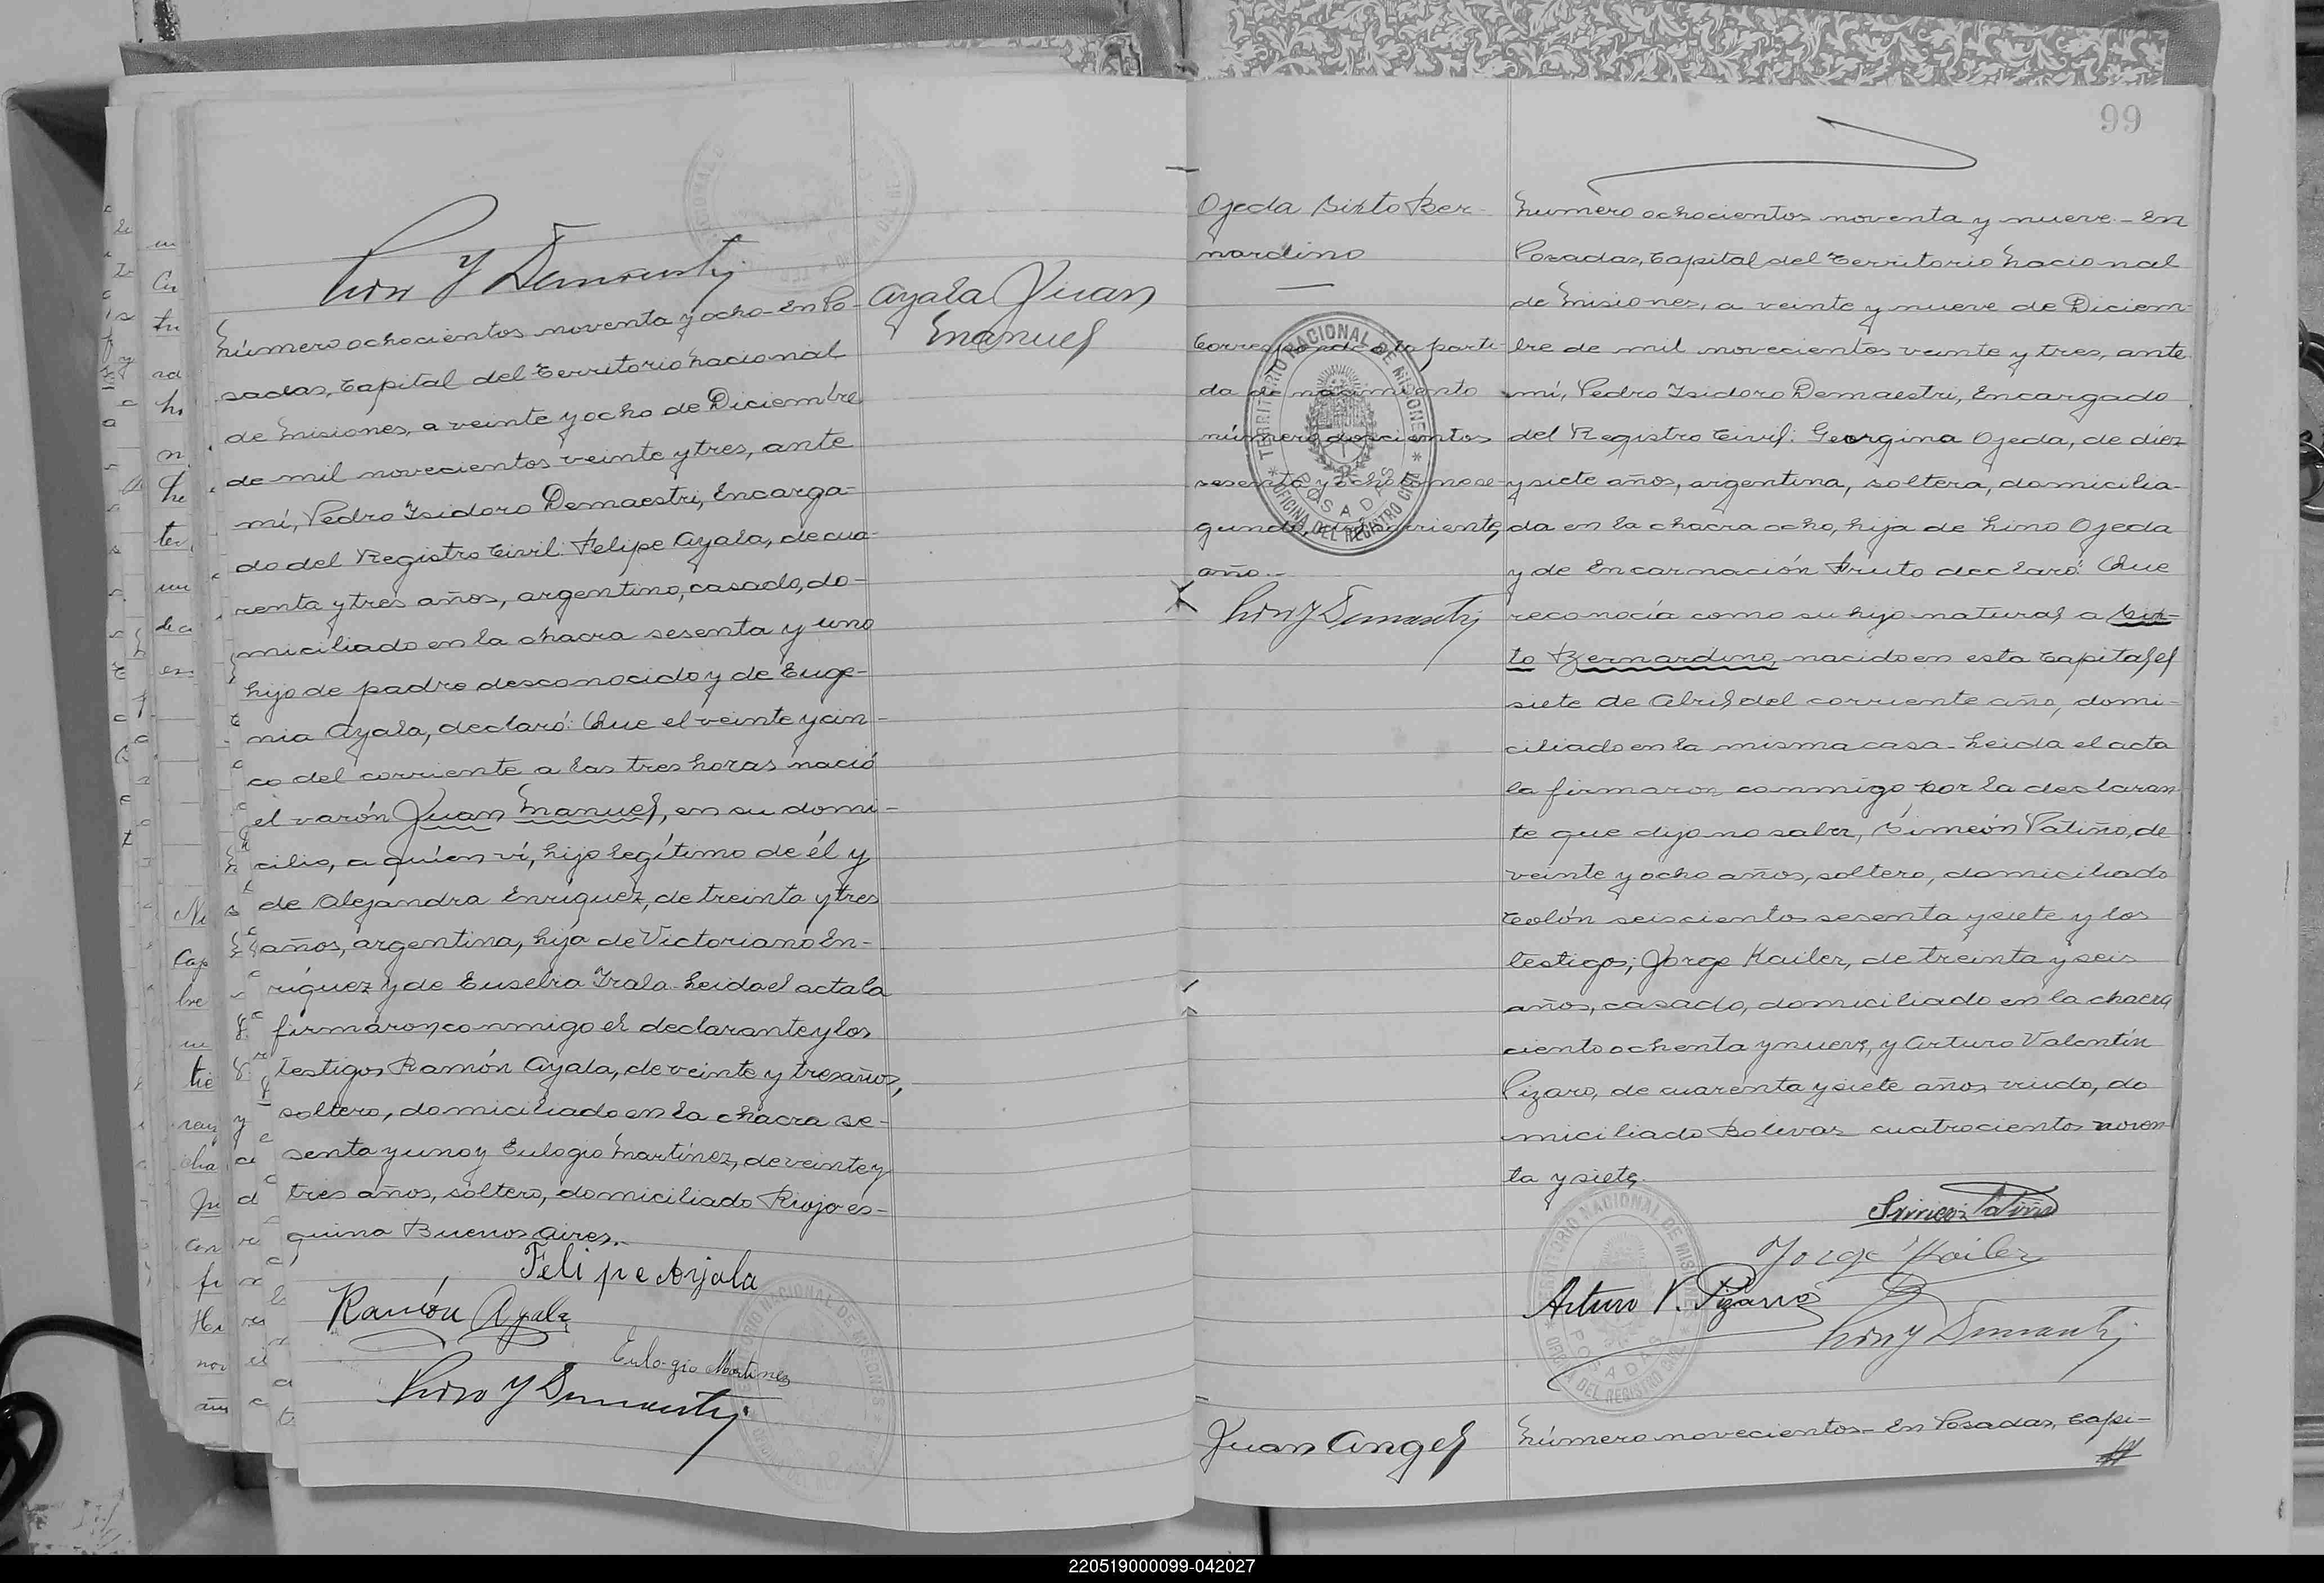 Número ochocientos noventa y ocho - En Po-
sadas, Capital del Territorio Nacional
de Misiones, a veinte y ocho de Diciembre
de mil novecientos veinte y tres, ante
mí, Pedro Isidoro Demaestri, Encarga-
do del Registro Civil: Felipe Ayala, de cua-
renta y tres años, argentino, casado, do-
miciliado en la chacra sesenta y uno
hijo de padre desconocido y de Euge-
nia Ayala, declaró: Que el veinte y cin-
co del corriente a las tres horas nació
el varón Juan Manuel, en su domi-
cilio, a quien ví, hijo legítimo de él y
de Alejandra Enríquez, de treinta y tres
años, argentina, hija de Victoriano En-
ríquez y de Eusebia Irala. Leida el acta la
firmaron conmigo el declarante y los
testigos Ramón Ayala, de veinte y tres años,
soltero, domiciliado en la chacra se-
senta y uno y Eulogio Martínez, de veinte y
tres años, soltero, domiciliado Rioja es-
quina Buenos Aires.-
Felipe Ayala
Ramón Ayala
Eulogio Martinez
Ayala Juan
Manuel
99
Ojeda Sixto Ber-
nardino
Corresponde a la parti-
da de nacimiento
número doscientos
sesenta y ocho tomo se-
gundo, del corriente
año.-
TERRITORIO NACIONAL DE MISIONES
POSADAS
OFICINA DEL REGISTRO CIVIL
Número ochocientos noventa y nueve - En
Posadas, Capital del Territorio Nacional
de Misiones, a veinte y nueve de Diciem-
bre de mil novecientos veinte y tres, ante
mí, Pedro Isidoro Demaestri, Encargado
del Registro Civil: Georgina Ojeda, de diez
y siete años, argentina, soltera, domicilia-
da en la chacra ocho, hija de Lino Ojeda
y de Encarnación Fruto declaró: Que
reconocía como su hijo natural a Six-
to Bernardino, nacido en esta Capital el
siete de Abril del corriente año, domi-
ciliado en la misma casa - Leida el acta
la firmaron conmigo por la declaran
te que dijo no saber, Simeón Patiño, de
veinte y ocho años, soltero, domiciliado
Colón seiscientos sesenta y siete y los
testigos; Jorge Kailer, de treinta y seis
años, casado, domiciliado en la chacra
ciento ochenta y nueve, y Arturo Valentín
Pizaro, de cuarenta y siete años viudo, do
miciliado Bolivar cuatrocientos noven
ta y siete.
Simeon Patiño
Jorge Kailer
Arturo V. Pizarro
TERRITORIO NACIONAL DE MISIONES
POSADAS
OFICINA DEL REGISTRO CIVIL
Juan Angel
Número novecientos - En Posadas, Capi-
220519000099-042027